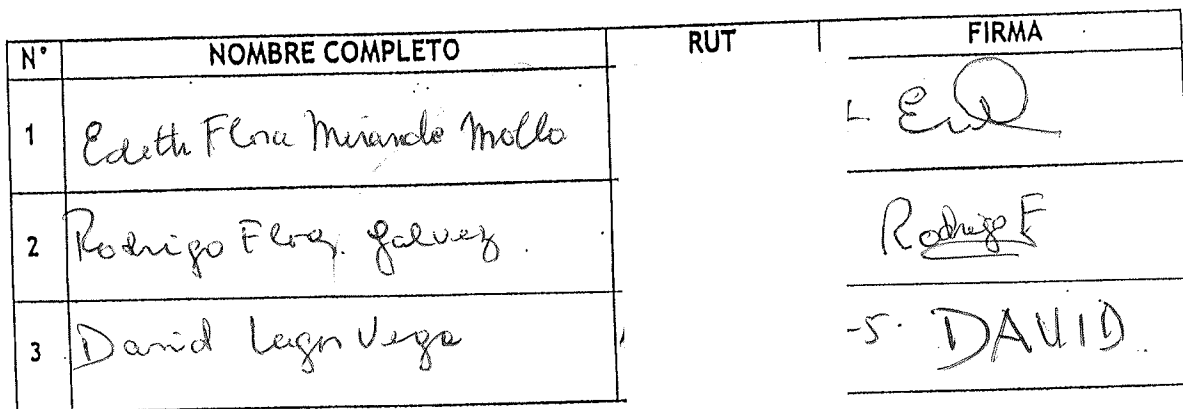 N° NOMBRE COMPLETO RUT FIRMA
1 Edith Flora Miranda Mollo
2 Rodrigo Galvez Rodrigo F
3 David Lagos Vega -5. DAVID